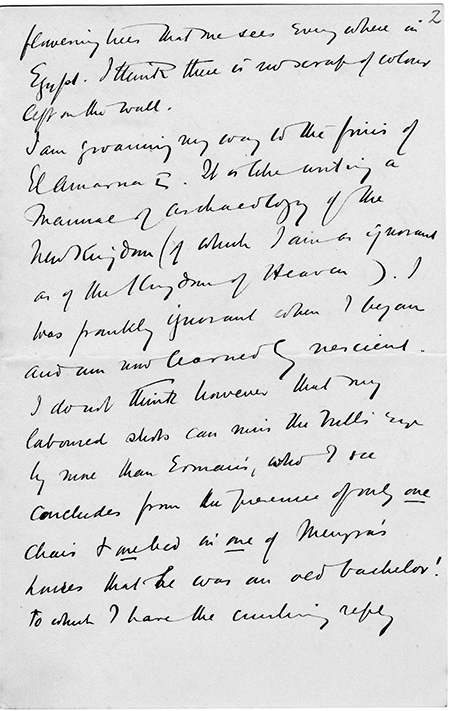 2
flowering trees that one sees everywhere in
Egypt. I think there is no scrap of colour
left on the wall.
I am groaning my way to the finis of
El Amarna II. It is like writing a
Manual of Archaeology of the
New Kingdom (of which I am as ignorant
as of the Kingdom of Heaven). I
was frankly ignorant when I began
and am now learnedly nescient.
I do not think however that my
laboured shots can miss the bulls eye
by more than Erman's, who I see
concludes from the presence of only one
chair & one bed in one of
houses that he was an old bachelor!
to which I have the crushing reply